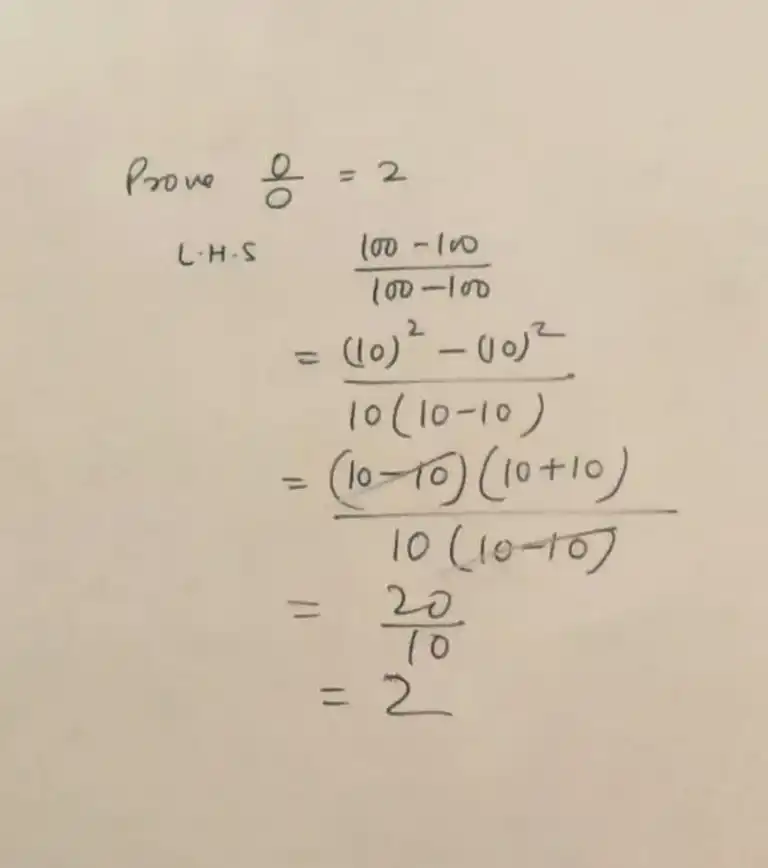 Prove 0/0 = 2
L.H.S 100 - 100 / 100 - 100
= (10)² - (10)² / 10(10-10)
= (10-10)(10+10) / 10(10-10)
= 20/10
= 2